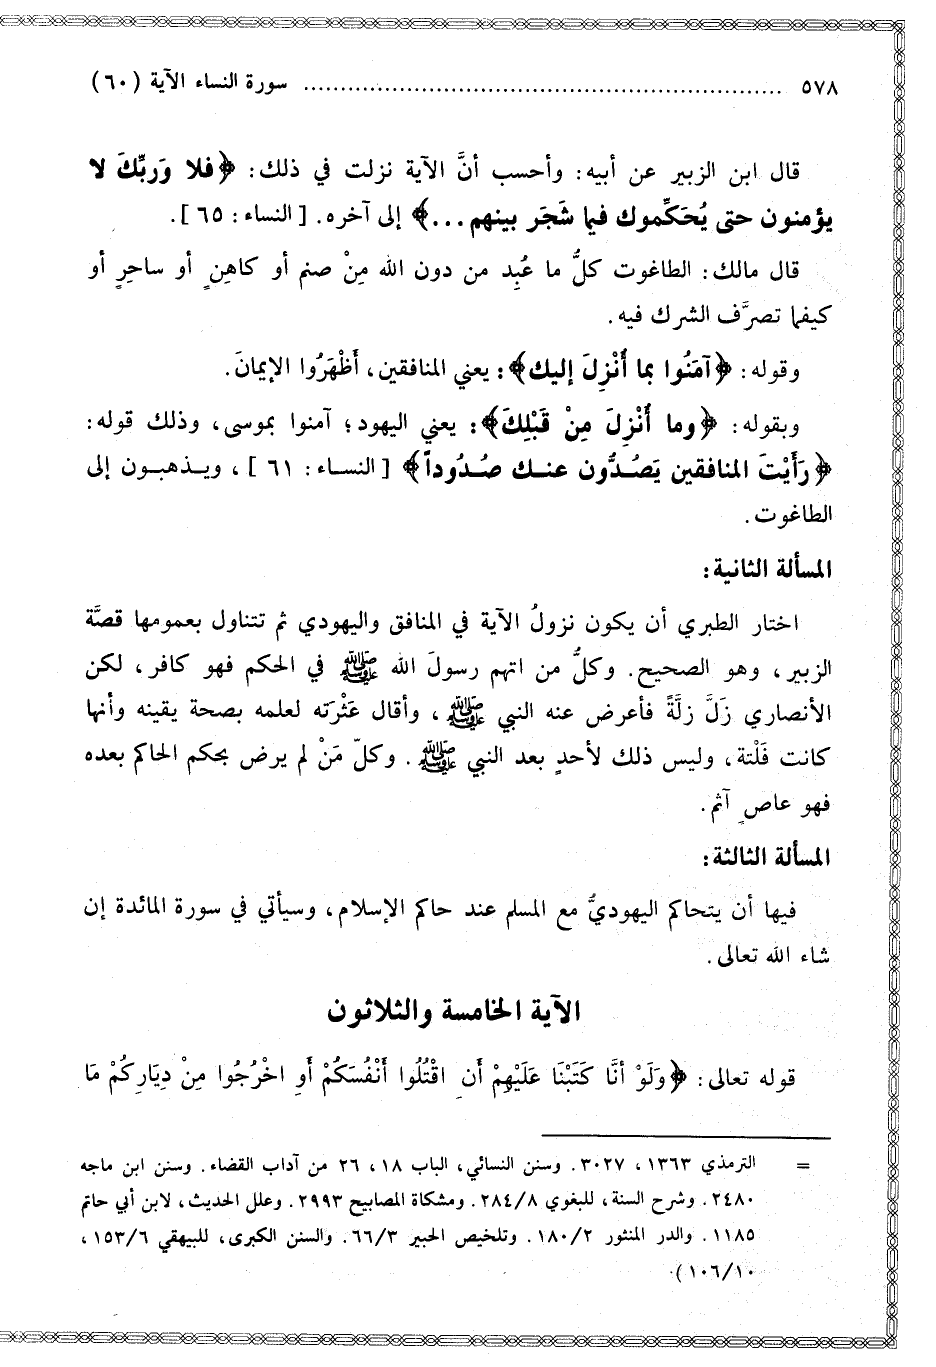 ٥٧٨ ................................................................ سورة النساء الآية (٦٠)
قال ابن الزبير عن أبيه: وأحسب أنَّ الآية نزلت في ذلك: ﴿فلا وَربِّكَ لا
يؤمنون حتى يُحَكِّموك فيما شَجَر بينهم...﴾ إلى آخره. [النساء: ٦٥].
قال مالك: الطاغوت كلُّ ما عُبِد من دون الله مِنْ صنم أو كاهنٍ أو ساحرٍ أو
كيفما تصرَّف الشرك فيه.
وقوله: ﴿آمَنُوا بما أُنْزِلَ إليك﴾: يعني المنافقين، أَظْهَرُوا الإيمانَ.
وبقوله: ﴿وما أُنْزِلَ مِنْ قَبْلِكَ﴾: يعني اليهود؛ آمنوا بموسى، وذلك قوله:
﴿رَأَيْتَ المنافقين يَصُدُّون عنك صُدُوداً﴾ [النساء: ٦١]، ويذهبون إلى
الطاغوت.
المسألة الثانية:
اختار الطبري أن يكون نزولُ الآية في المنافق واليهودي ثم تتناول بعمومها قصَّة
الزبير، وهو الصحيح. وكلُّ من اتهم رسولَ الله ﷺ في الحكم فهو كافر، لكن
الأنصاري زَلَّ زلَّةً فأعرض عنه النبي ﷺ، وأقال عَثْرَته لعلمه بصحة يقينه وأنها
كانت فَلْتة، وليس ذلك لأحدٍ بعد النبي ﷺ. وكلّ مَنْ لم يرض بحكم الحاكم بعده
فهو عاصٍ آثم.
المسألة الثالثة:
فيها أن يتحاكم اليهوديُّ مع المسلم عند حاكم الإسلام، وسيأتي في سورة المائدة إن
شاء الله تعالى.
الآية الخامسة والثلاثون
قوله تعالى: ﴿وَلَوْ أنَّا كَتَبْنَا عَلَيْهِمْ أَنِ اقْتُلُوا أَنْفُسَكُمْ أَوِ اخْرُجُوا مِنْ دِيَارِكُمْ مَا
= الترمذي ١٣٦٣، ٣٠٢٧. وسنن النسائي، الباب ١٨، ٢٦ من آداب القضاء. وسنن ابن ماجه
٢٤٨٠. وشرح السنة، للبغوي ٢٨٤/٨. ومشكاة المصابيح ٢٩٩٣. وعلل الحديث، لابن أبي حاتم
١١٨٥. والدر المنثور ١٨٠/٢. وتلخيص الحبير ٦٦/٣. والسنن الكبرى، للبيهقي ١٥٣/٦،
١٠٦/١٠).